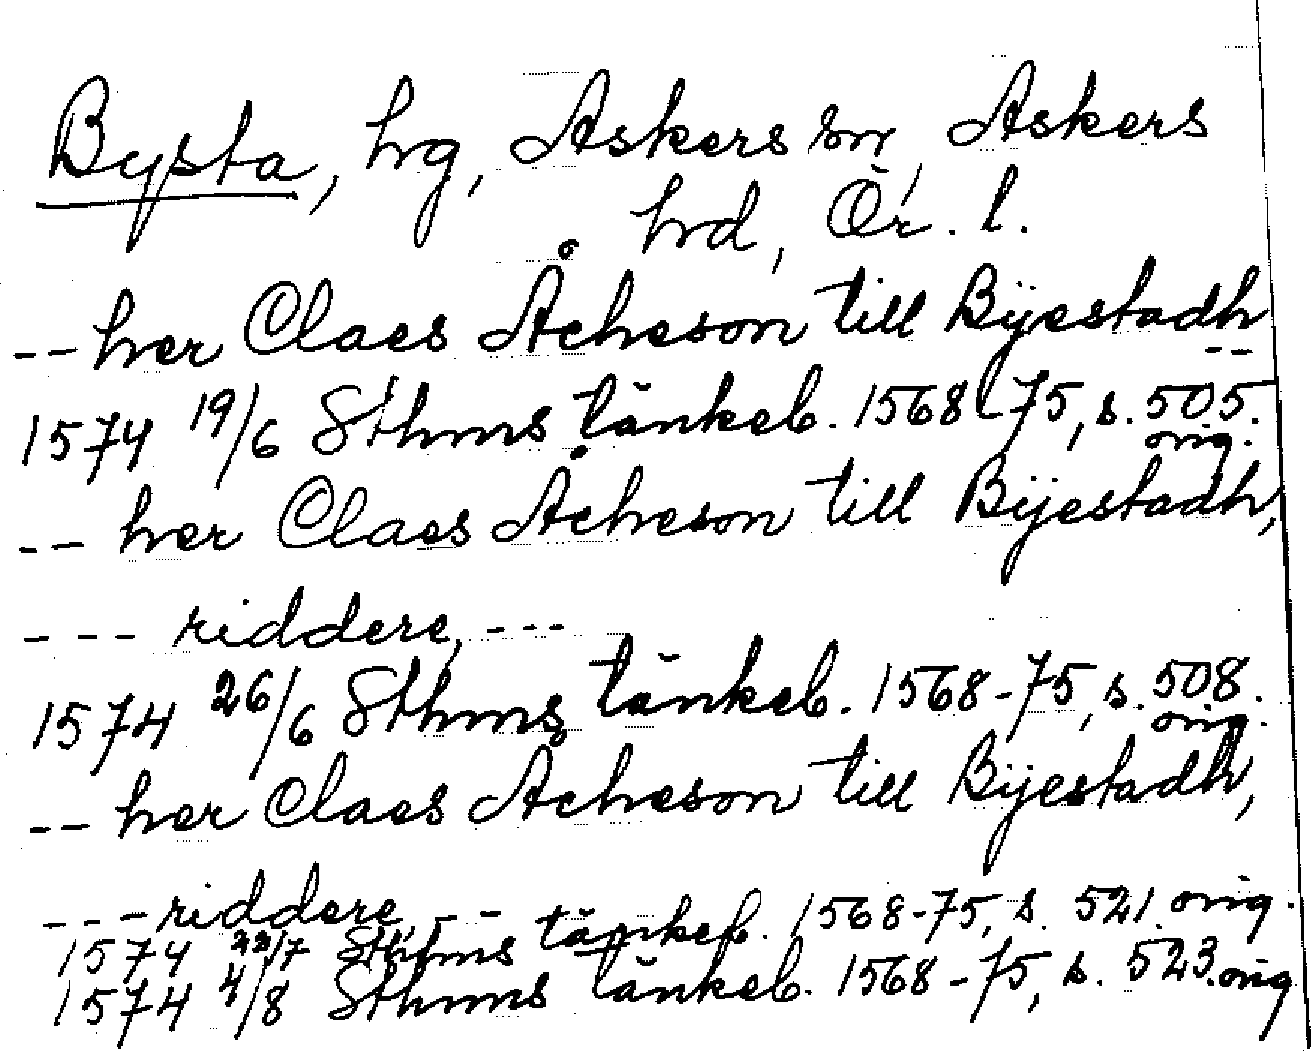 Bysta, hg, Askers sn, Askers
hrd, Ör. l.
-- her Claes Åcheson till Bijestadh --
1574 19/6 Sthms tänkeb. 1568-75, s. 505. orig.
-- her Claes Åcheson till Bijestadh,
--- riddere, ---
1574 26/6 Sthms tänkeb. 1568-75, s. 508. orig.
-- her Claes Åcheson till Bijestadh,
--- riddere, --
1574 22/7 Sthms tänkeb. 1568-75, s. 521. orig.
1574 4/8 Sthms tänkeb. 1568-75, s. 523. orig